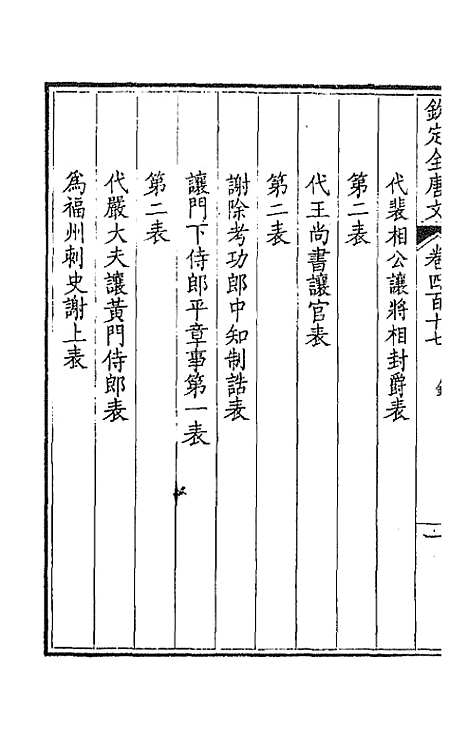 欽定全唐文 卷四百十七
代裴相公讓將相封爵表
第二表
代王尚書讓官表
第二表
謝除考功郎中知制誥表
讓門下侍郎平章事第一表
第二表
代嚴大夫讓黃門侍郎表
為福州刺史謝上表